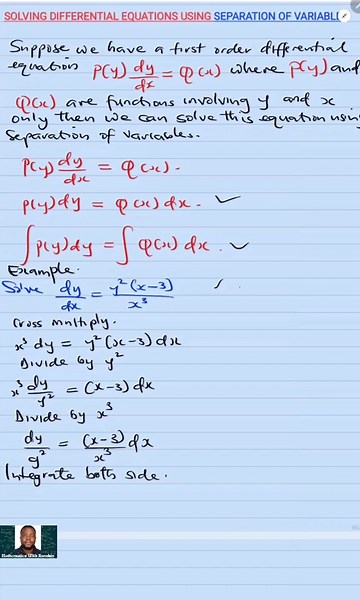 SOLVING DIFFERENTIAL EQUATIONS USING SEPARATION OF VARIABLE
Suppose we have a first order differential
equation P(y) dy/dx = Q(x) where P(y) and
Q(x) are functions involving y and x
only then we can solve this equation using
Separation of variables.
P(y) dy/dx = Q(x).
P(y) dy = Q(x) dx. ✓
∫P(y) dy = ∫Q(x) dx. ✓
Example.
Solve dy/dx = y²(x-3)/x³
Cross multiply.
x³ dy = y²(x-3) dx
Divide by y²
x³ dy/y² = (x-3) dx
Divide by x³
dy/y² = (x-3)/x³ dx
Integrate both side.